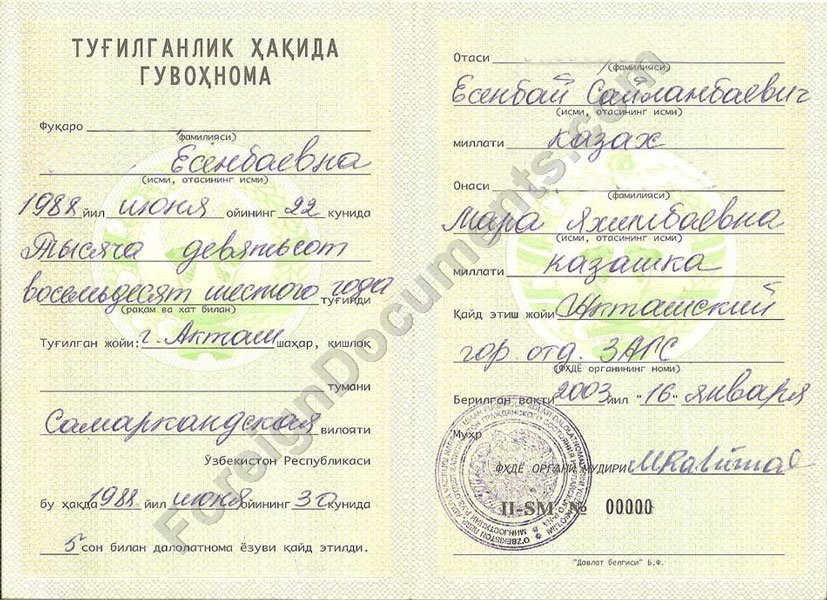 ТУҒИЛГАНЛИК ҲАҚИДА
ГУВОҲНОМА
Фуқаро
(фамилияси)
Есенбаевна
(исми, отасининг исми)
1988 йил июня ойининг 22 кунида
Тысяча девятьсот
восемьдесят шестого года туғилди
(рақам ва хат билан)
Туғилган жойи: г. Акташ шаҳар, қишлоқ
тумани
Самаркандская вилояти
Ўзбекистон Республикаси
бу ҳақда 1988 йил июня ойининг 30 кунида
5 сон билан далолатнома ёзуви қайд этилди.
Отаси
(фамилияси)
Есенбай Сайланбаевич
(исми, отасининг исми)
миллати казах
Онаси
(фамилияси)
Мара Яхшибаевна
(исми, отасининг исми)
миллати казашка
Қайд этиш жойи Акташский
гор отд. ЗАГС
(ФҲДЁ органининг номи)
Берилган вақти 2003 йил "16" января
Муҳр
ФҲДЁ ОРГАНИ МУДИРИ
II-SM № 00000
"Давлат белгиси" Б.Ф.
ForeignDocuments.com